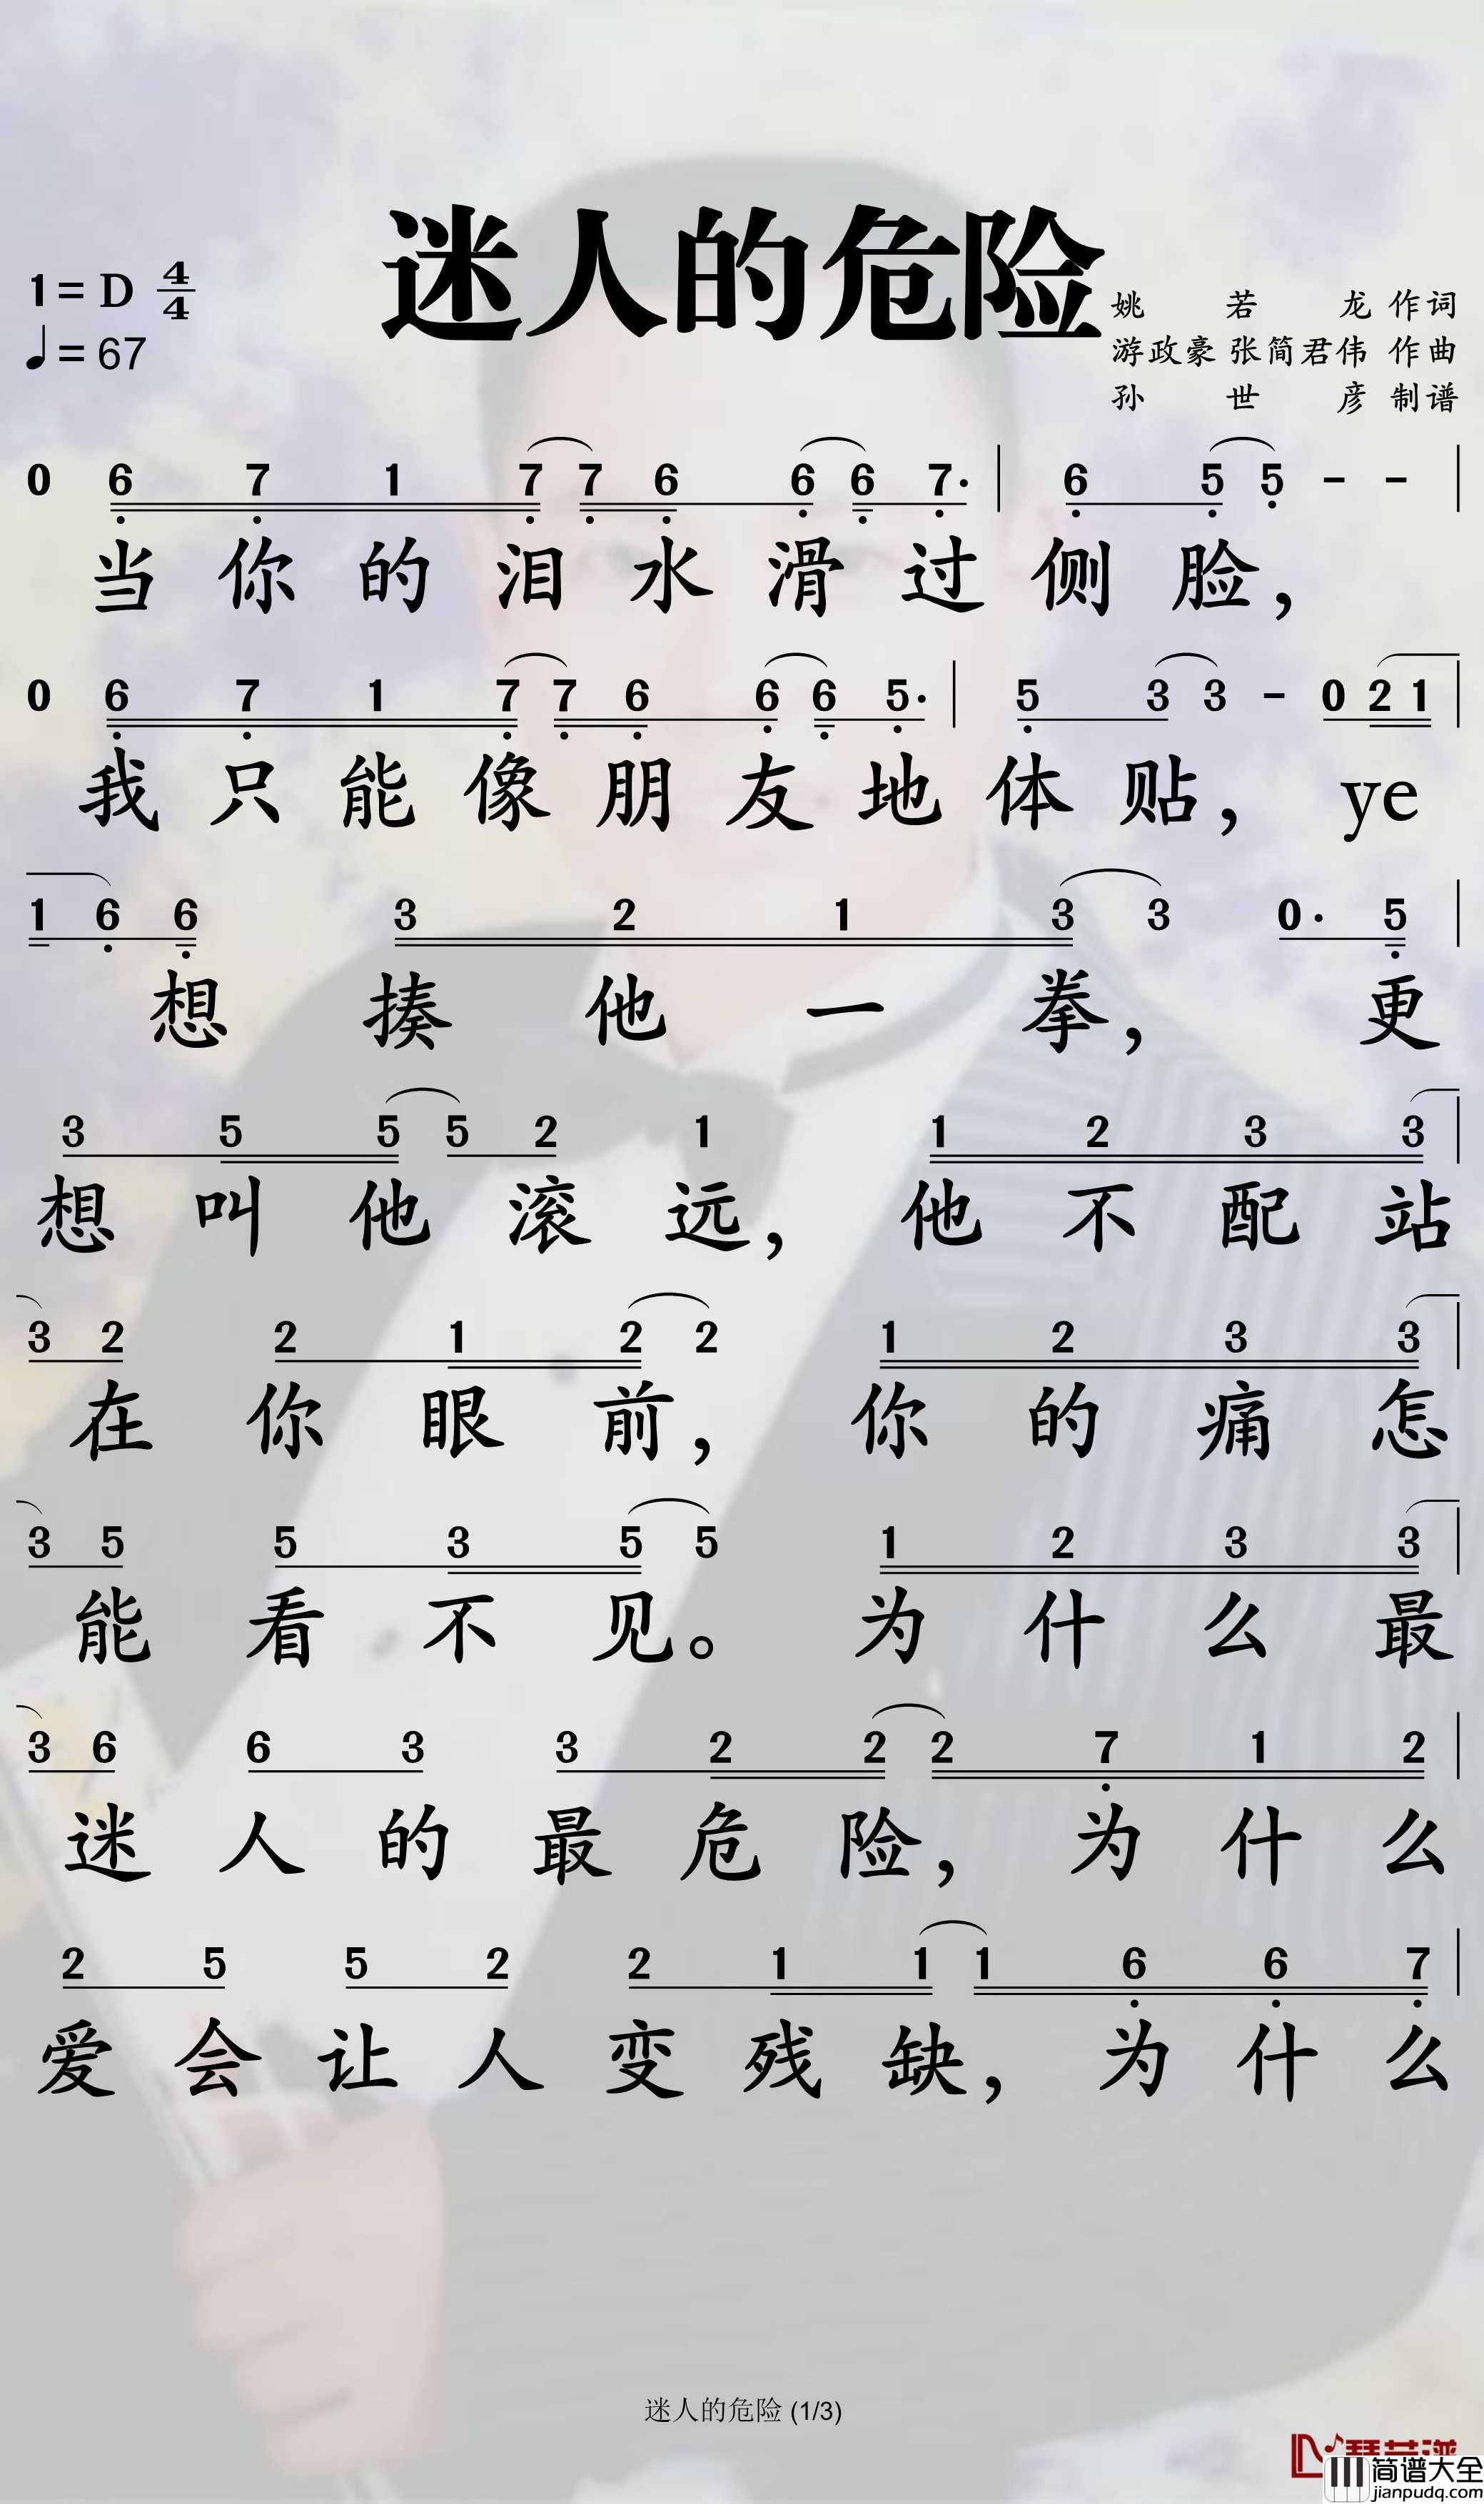 迷人的危险
1= D 4/4
♩= 67
姚若龙 作词
游政豪 张简君伟 作曲
孙世彦 制谱
0 6 7 1 7 7 6 6 6 7. | 6 5 5 - - |
当你的泪水滑过侧脸，
0 6 7 1 7 7 6 6 6 5. | 5 3 3 - 0 2 1 |
我只能像朋友地体贴，ye
1 6 6 3 2 1 3 3 0. 5 |
想揍他一拳，更
3 5 5 5 2 1 1 2 3 3 |
想叫他滚远，他不配站
3 2 2 1 2 2 1 2 3 3 |
在你眼前，你的痛怎
3 5 5 3 5 5 1 2 3 3 |
能看不见。为什么最
3 6 6 3 3 2 2 2 7 1 2 |
迷人的最危险，为什么
2 5 5 2 2 1 1 1 6 6 7 |
爱会让人变残缺，为什么
迷人的危险 (1/3)
简谱大全
jianpudq.com